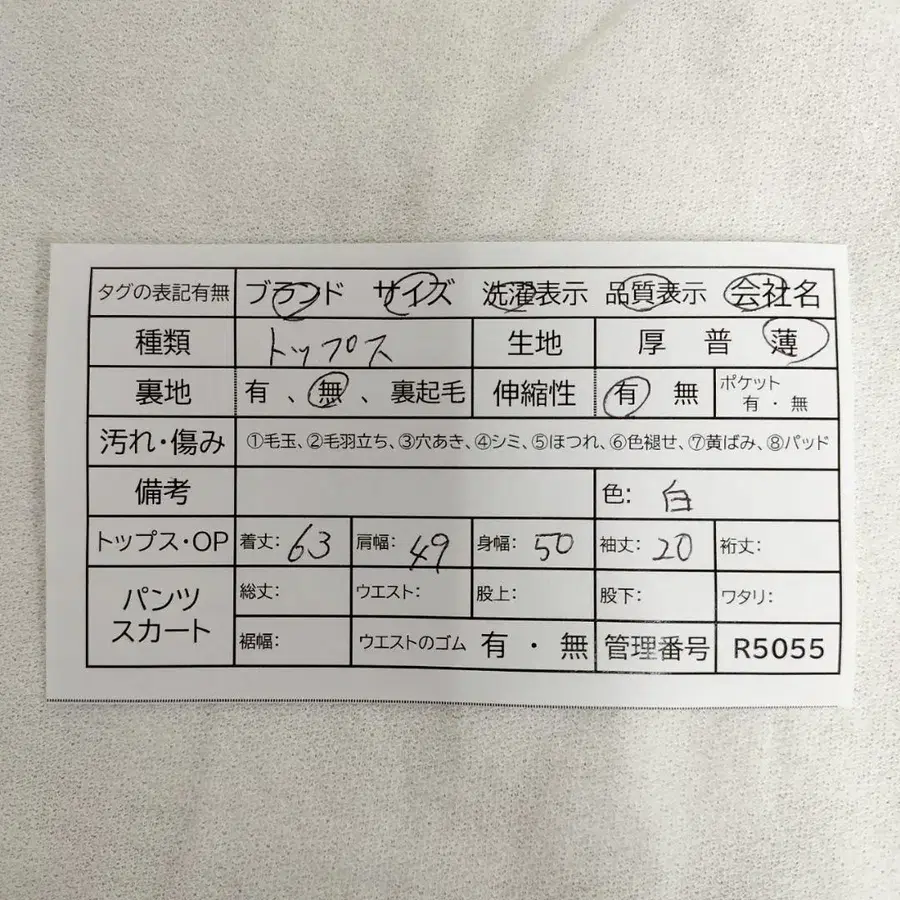 タグの表記有無 ブランド サイズ 洗濯表示 品質表示 会社名
種類 トップス 生地 厚 普 薄
裏地 有 、 無 、 裏起毛 伸縮性 有 無 ポケット 有 ・ 無
汚れ・傷み ①毛玉、②毛羽立ち、③穴あき、④シミ、⑤ほつれ、⑥色褪せ、⑦黄ばみ、⑧パッド
備考 色: 白
トップス・OP 着丈: 63 肩幅: 49 身幅: 50 袖丈: 20 裄丈:
パンツ スカート 総丈: ウエスト: 股上: 股下: ワタリ:
裾幅: ウエストのゴム 有 ・ 無 管理番号 R5055